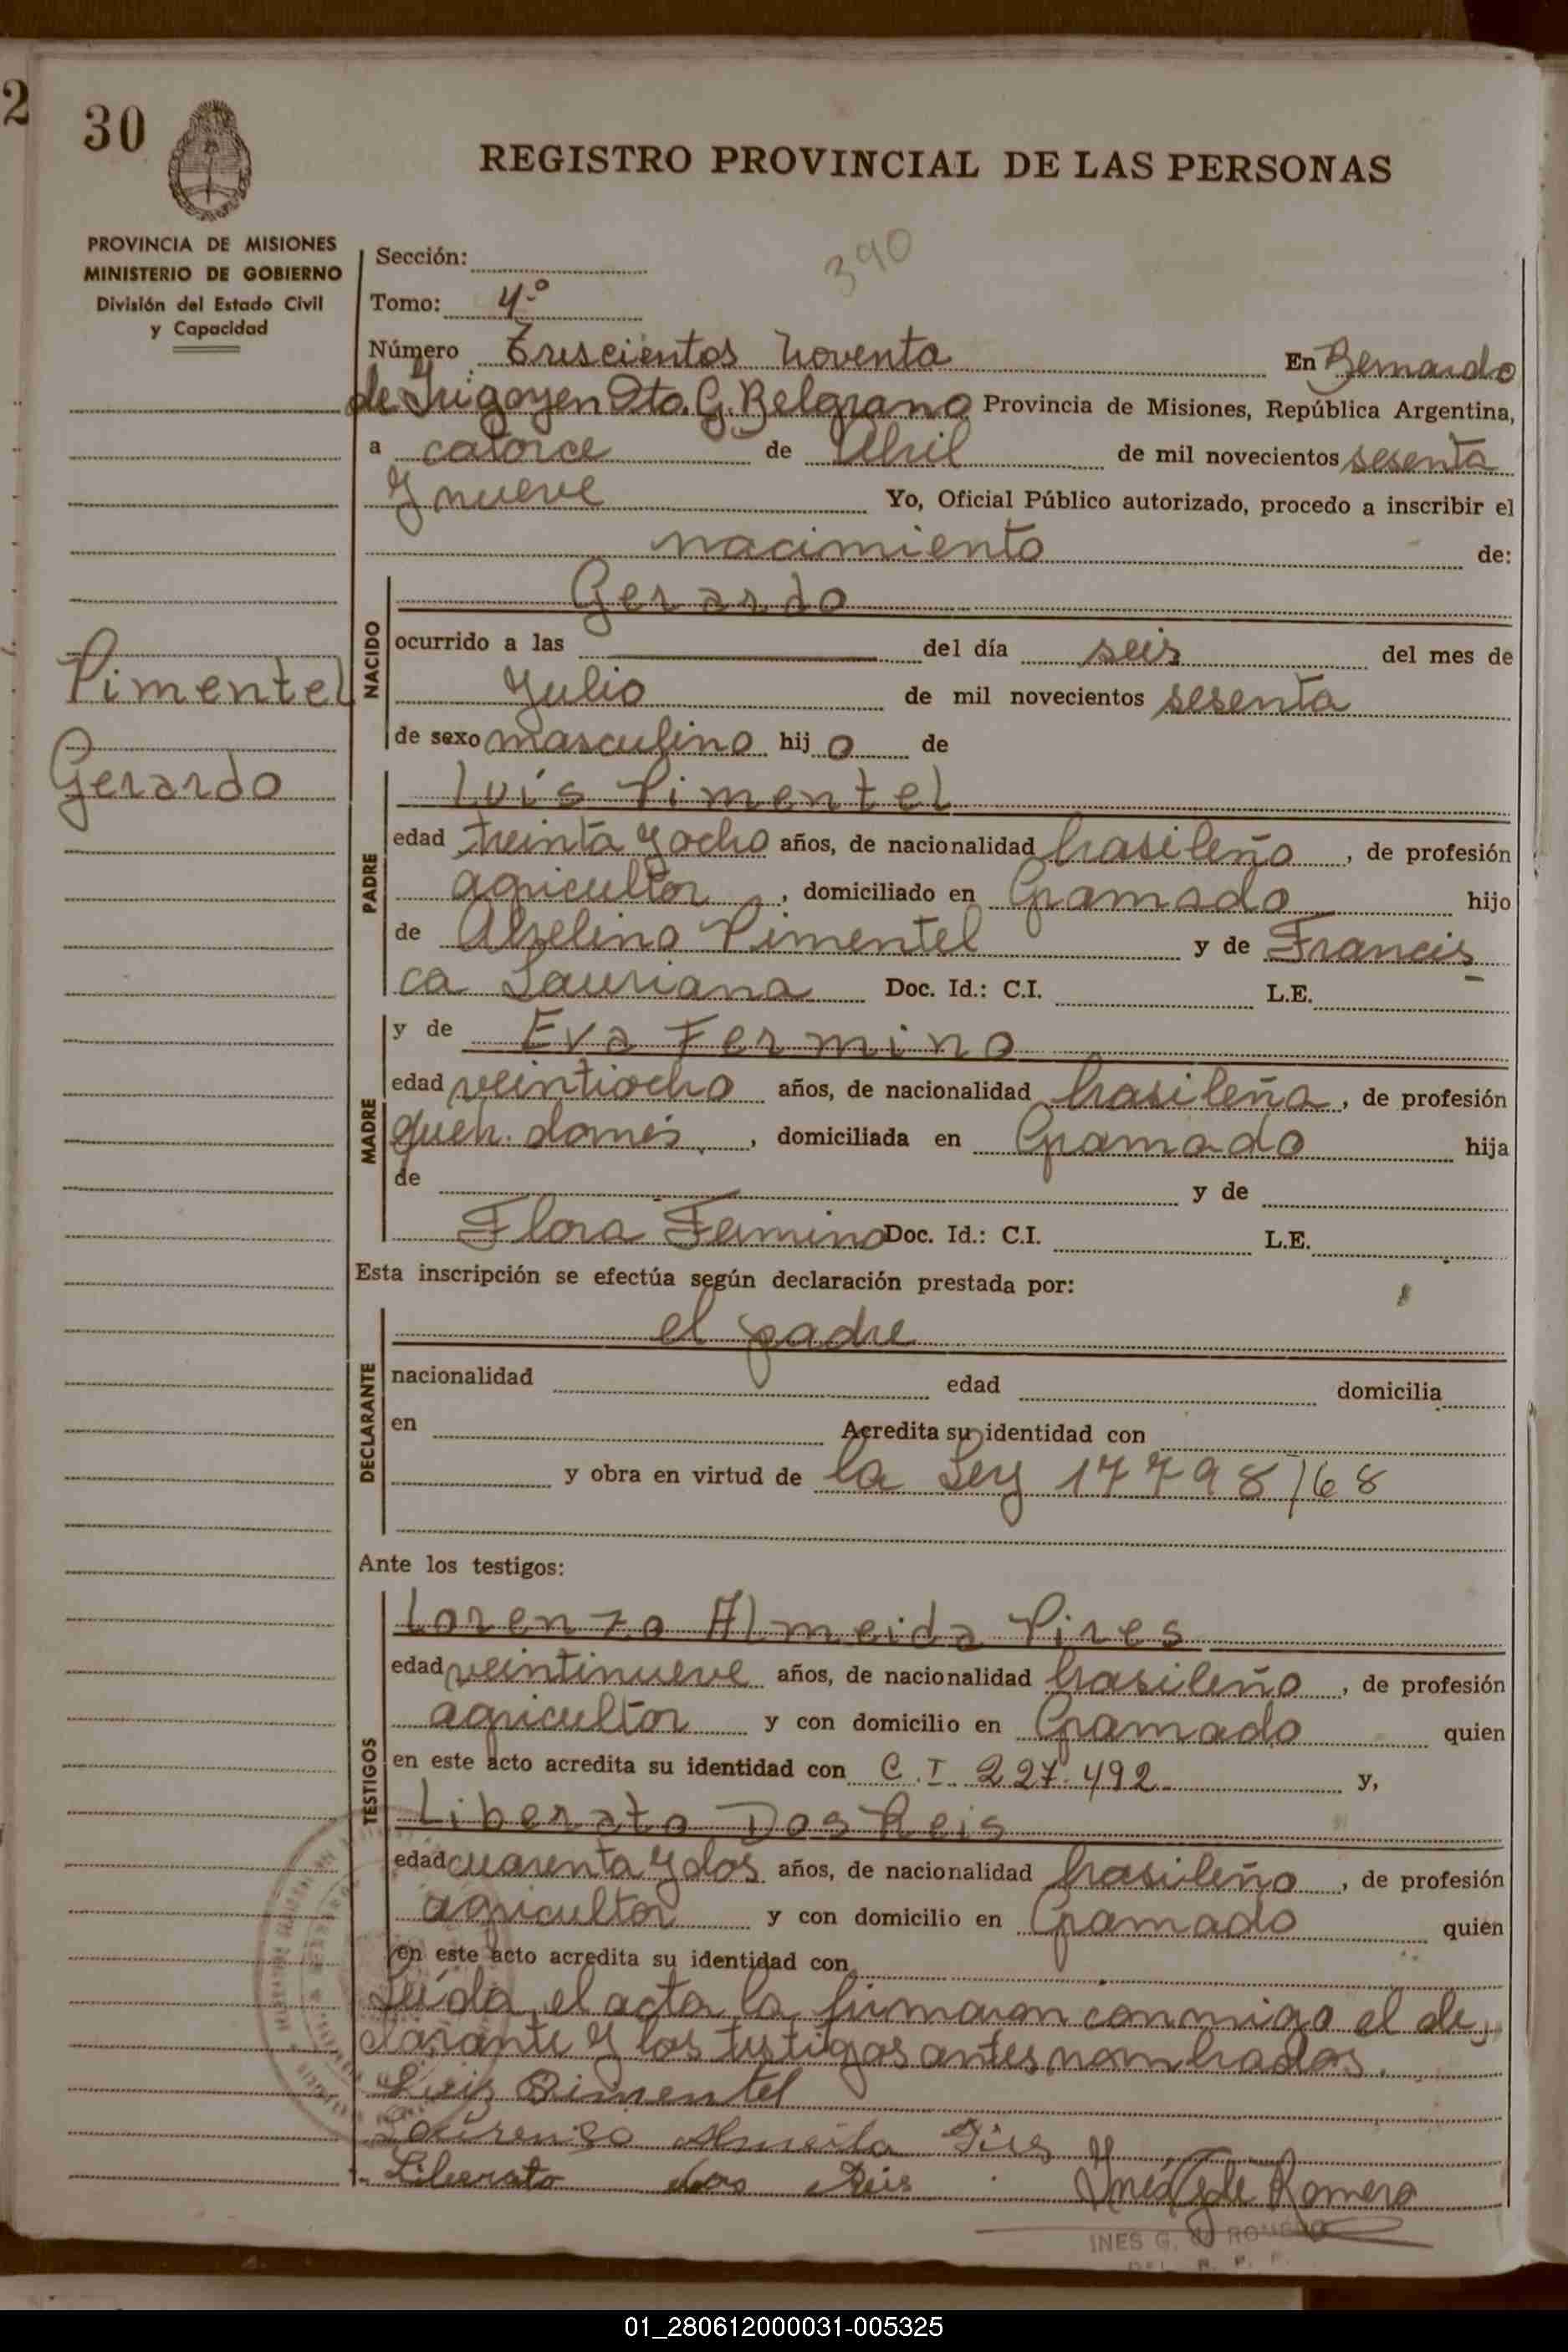 2
30
REGISTRO PROVINCIAL DE LAS PERSONAS
PROVINCIA DE MISIONES
MINISTERIO DE GOBIERNO
División del Estado Civil
y Capacidad
390
Sección:
Tomo: 4º
Número Trescientos noventa En Bernardo
de Irigoyen Dto. G. Belgrano Provincia de Misiones, República Argentina,
a catorce de Abril de mil novecientos sesenta
y nueve Yo, Oficial Público autorizado, procedo a inscribir el
nacimiento de:
Pimentel
Gerardo
NACIDO
Gerardo
ocurrido a las del día seis del mes de
Julio de mil novecientos sesenta
de sexo masculino hijo de
PADRE
Luis Pimentel
edad treinta y ocho años, de nacionalidad brasileño, de profesión
agricultor, domiciliado en Gramado hijo
de Pimentel y de Francis
ca Lauriana Doc. Id.: C.I. L.E.
MADRE
y de Eva Fermino
edad veintiocho años, de nacionalidad brasileña, de profesión
queh. domés., domiciliada en Gramado hija
de y de
Flora Fermino Doc. Id.: C.I. L.E.
Esta inscripción se efectúa según declaración prestada por:
DECLARANTE
el padre
nacionalidad edad domicilia
en Acredita su identidad con
y obra en virtud de la Ley 17798/68
Ante los testigos:
TESTIGOS
Lorenzo Almeida Pires
edad veintinueve años, de nacionalidad brasileño, de profesión
agricultor y con domicilio en Gramado quien
en este acto acredita su identidad con C.I. 227.492 y,
Liberato Dos Reis
edad cuarenta y dos años, de nacionalidad brasileño, de profesión
agricultor y con domicilio en Gramado quien
en este acto acredita su identidad con
Leída el acta la firmaron conmigo el de
clarante y los testigos antes nombrados.
Luiz Pimentel
Lourenço Almeida Pires
Liberato dos Reis Inés G de Romero
INES G. de ROMERO
DEL. R. P. P.
01_280612000031-005325